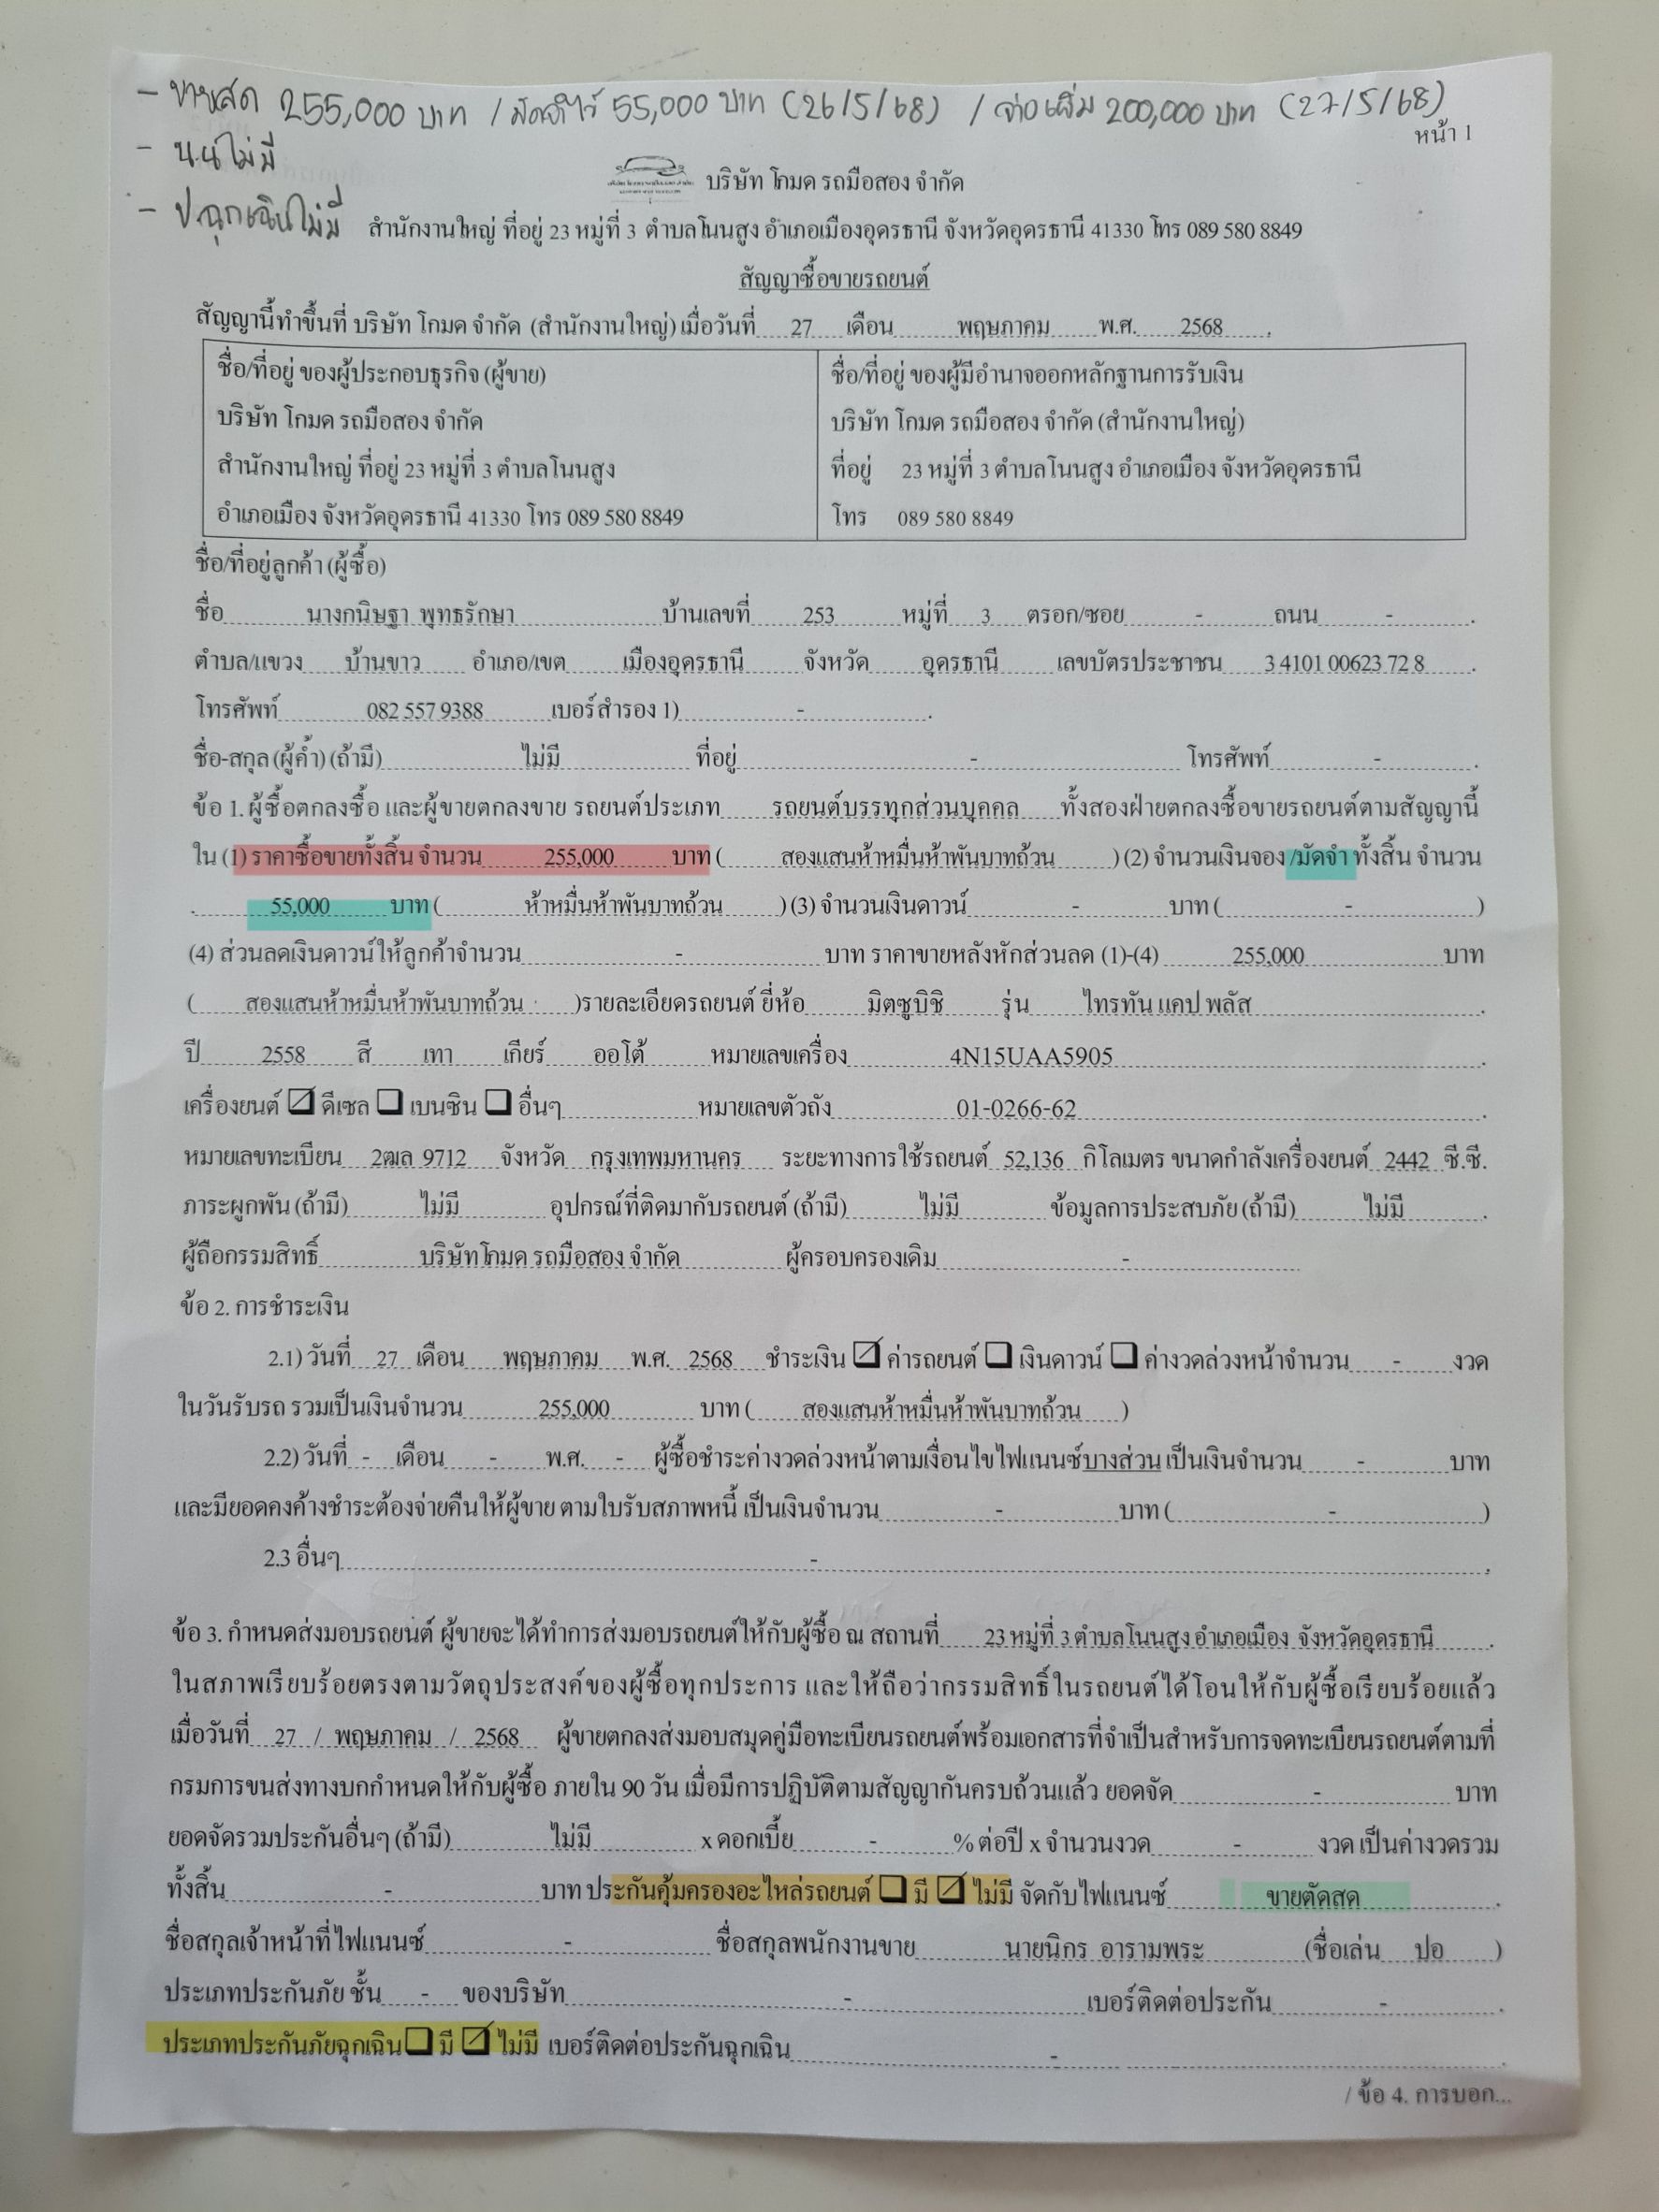 - ขายสด 255,000 บาท / มัดจำไว้ 55,000 บาท (26/5/68) / จ่ายเพิ่ม 200,000 บาท (27/5/68)
หน้า 1
- น.น ไม่มี
บริษัท โกมด รถมือสอง จำกัด
- ป.ฉุกเฉินไม่มี
สำนักงานใหญ่ ที่อยู่ 23 หมู่ที่ 3 ตำบลโนนสูง อำเภอเมืองอุดรธานี จังหวัดอุดรธานี 41330 โทร 089 580 8849
สัญญาซื้อขายรถยนต์
สัญญานี้ทำขึ้นที่ บริษัท โกมด จำกัด (สำนักงานใหญ่) เมื่อวันที่ 27 เดือน พฤษภาคม พ.ศ. 2568 .
ชื่อ/ที่อยู่ ของผู้ประกอบธุรกิจ (ผู้ขาย)
บริษัท โกมด รถมือสอง จำกัด
สำนักงานใหญ่ ที่อยู่ 23 หมู่ที่ 3 ตำบลโนนสูง
อำเภอเมือง จังหวัดอุดรธานี 41330 โทร 089 580 8849
ชื่อ/ที่อยู่ ของผู้มีอำนาจออกหลักฐานการรับเงิน
บริษัท โกมด รถมือสอง จำกัด (สำนักงานใหญ่)
ที่อยู่ 23 หมู่ที่ 3 ตำบลโนนสูง อำเภอเมือง จังหวัดอุดรธานี
โทร 089 580 8849
ชื่อ/ที่อยู่ลูกค้า (ผู้ซื้อ)
ชื่อ นางกนิษฐา พุทธรักษา บ้านเลขที่ 253 หมู่ที่ 3 ตรอก/ซอย - ถนน - .
ตำบล/แขวง บ้านขาว อำเภอ/เขต เมืองอุดรธานี จังหวัด อุดรธานี เลขบัตรประชาชน 3 4101 00623 72 8 .
โทรศัพท์ 082 557 9388 เบอร์สำรอง 1) - .
ชื่อ-สกุล (ผู้ค้ำ) (ถ้ามี) ไม่มี ที่อยู่ - โทรศัพท์ - .
ข้อ 1. ผู้ซื้อตกลงซื้อ และผู้ขายตกลงขาย รถยนต์ประเภท รถยนต์บรรทุกส่วนบุคคล ทั้งสองฝ่ายตกลงซื้อขายรถยนต์ตามสัญญานี้
ใน (1) ราคาซื้อขายทั้งสิ้น จำนวน 255,000 บาท ( สองแสนห้าหมื่นห้าพันบาทถ้วน ) (2) จำนวนเงินจอง /มัดจำ ทั้งสิ้น จำนวน
. 55,000 บาท ( ห้าหมื่นห้าพันบาทถ้วน ) (3) จำนวนเงินดาวน์ - บาท ( - )
(4) ส่วนลดเงินดาวน์ให้ลูกค้าจำนวน - บาท ราคาขายหลังหักส่วนลด (1)-(4) 255,000 บาท
( สองแสนห้าหมื่นห้าพันบาทถ้วน )รายละเอียดรถยนต์ ยี่ห้อ มิตซูบิชิ รุ่น ไทรทัน แคป พลัส .
ปี 2558 สี เทา เกียร์ ออโต้ หมายเลขเครื่อง 4N15UAA5905 .
เครื่องยนต์ ☑ ดีเซล ☐ เบนซิน ☐ อื่นๆ หมายเลขตัวถัง 01-0266-62 .
หมายเลขทะเบียน 2ฒล 9712 จังหวัด กรุงเทพมหานคร ระยะทางการใช้รถยนต์ 52,136 กิโลเมตร ขนาดกำลังเครื่องยนต์ 2442 ซี.ซี.
ภาระผูกพัน (ถ้ามี) ไม่มี อุปกรณ์ที่ติดมากับรถยนต์ (ถ้ามี) ไม่มี ข้อมูลการประสบภัย (ถ้ามี) ไม่มี .
ผู้ถือกรรมสิทธิ์ บริษัทโกมด รถมือสอง จำกัด ผู้ครอบครองเดิม -
ข้อ 2. การชำระเงิน
2.1) วันที่ 27 เดือน พฤษภาคม พ.ศ. 2568 ชำระเงิน ☑ ค่ารถยนต์ ☐ เงินดาวน์ ☐ ค่างวดล่วงหน้าจำนวน - งวด
ในวันรับรถ รวมเป็นเงินจำนวน 255,000 บาท ( สองแสนห้าหมื่นห้าพันบาทถ้วน )
2.2) วันที่ - เดือน - พ.ศ. - ผู้ซื้อชำระค่างวดล่วงหน้าตามเงื่อนไขไฟแนนซ์บางส่วน เป็นเงินจำนวน - บาท
และมียอดคงค้างชำระต้องจ่ายคืนให้ผู้ขาย ตามใบรับสภาพหนี้ เป็นเงินจำนวน - บาท ( - )
2.3 อื่นๆ - .
ข้อ 3. กำหนดส่งมอบรถยนต์ ผู้ขายจะได้ทำการส่งมอบรถยนต์ให้กับผู้ซื้อ ณ สถานที่ 23 หมู่ที่ 3 ตำบลโนนสูง อำเภอเมือง จังหวัดอุดรธานี .
ในสภาพเรียบร้อยตรงตามวัตถุประสงค์ของผู้ซื้อทุกประการ และให้ถือว่ากรรมสิทธิ์ในรถยนต์ได้โอนให้กับผู้ซื้อเรียบร้อยแล้ว
เมื่อวันที่ 27 / พฤษภาคม / 2568 ผู้ขายตกลงส่งมอบสมุดคู่มือทะเบียนรถยนต์พร้อมเอกสารที่จำเป็นสำหรับการจดทะเบียนรถยนต์ตามที่
กรมการขนส่งทางบกกำหนดให้กับผู้ซื้อ ภายใน 90 วัน เมื่อมีการปฏิบัติตามสัญญากันครบถ้วนแล้ว ยอดจัด - บาท
ยอดจัดรวมประกันอื่นๆ (ถ้ามี) ไม่มี x ดอกเบี้ย - % ต่อปี x จำนวนงวด - งวด เป็นค่างวดรวม
ทั้งสิ้น - บาท ประกันคุ้มครองอะไหล่รถยนต์ ☐ มี ☑ ไม่มี จัดกับไฟแนนซ์ ขายตัดสด .
ชื่อสกุลเจ้าหน้าที่ไฟแนนซ์ - ชื่อสกุลพนักงานขาย นายนิกร อารามพระ (ชื่อเล่น ปอ )
ประเภทประกันภัย ชั้น - ของบริษัท - เบอร์ติดต่อประกัน - .
ประเภทประกันภัยฉุกเฉิน ☐ มี ☑ ไม่มี เบอร์ติดต่อประกันฉุกเฉิน - .
/ ข้อ 4. การบอก...